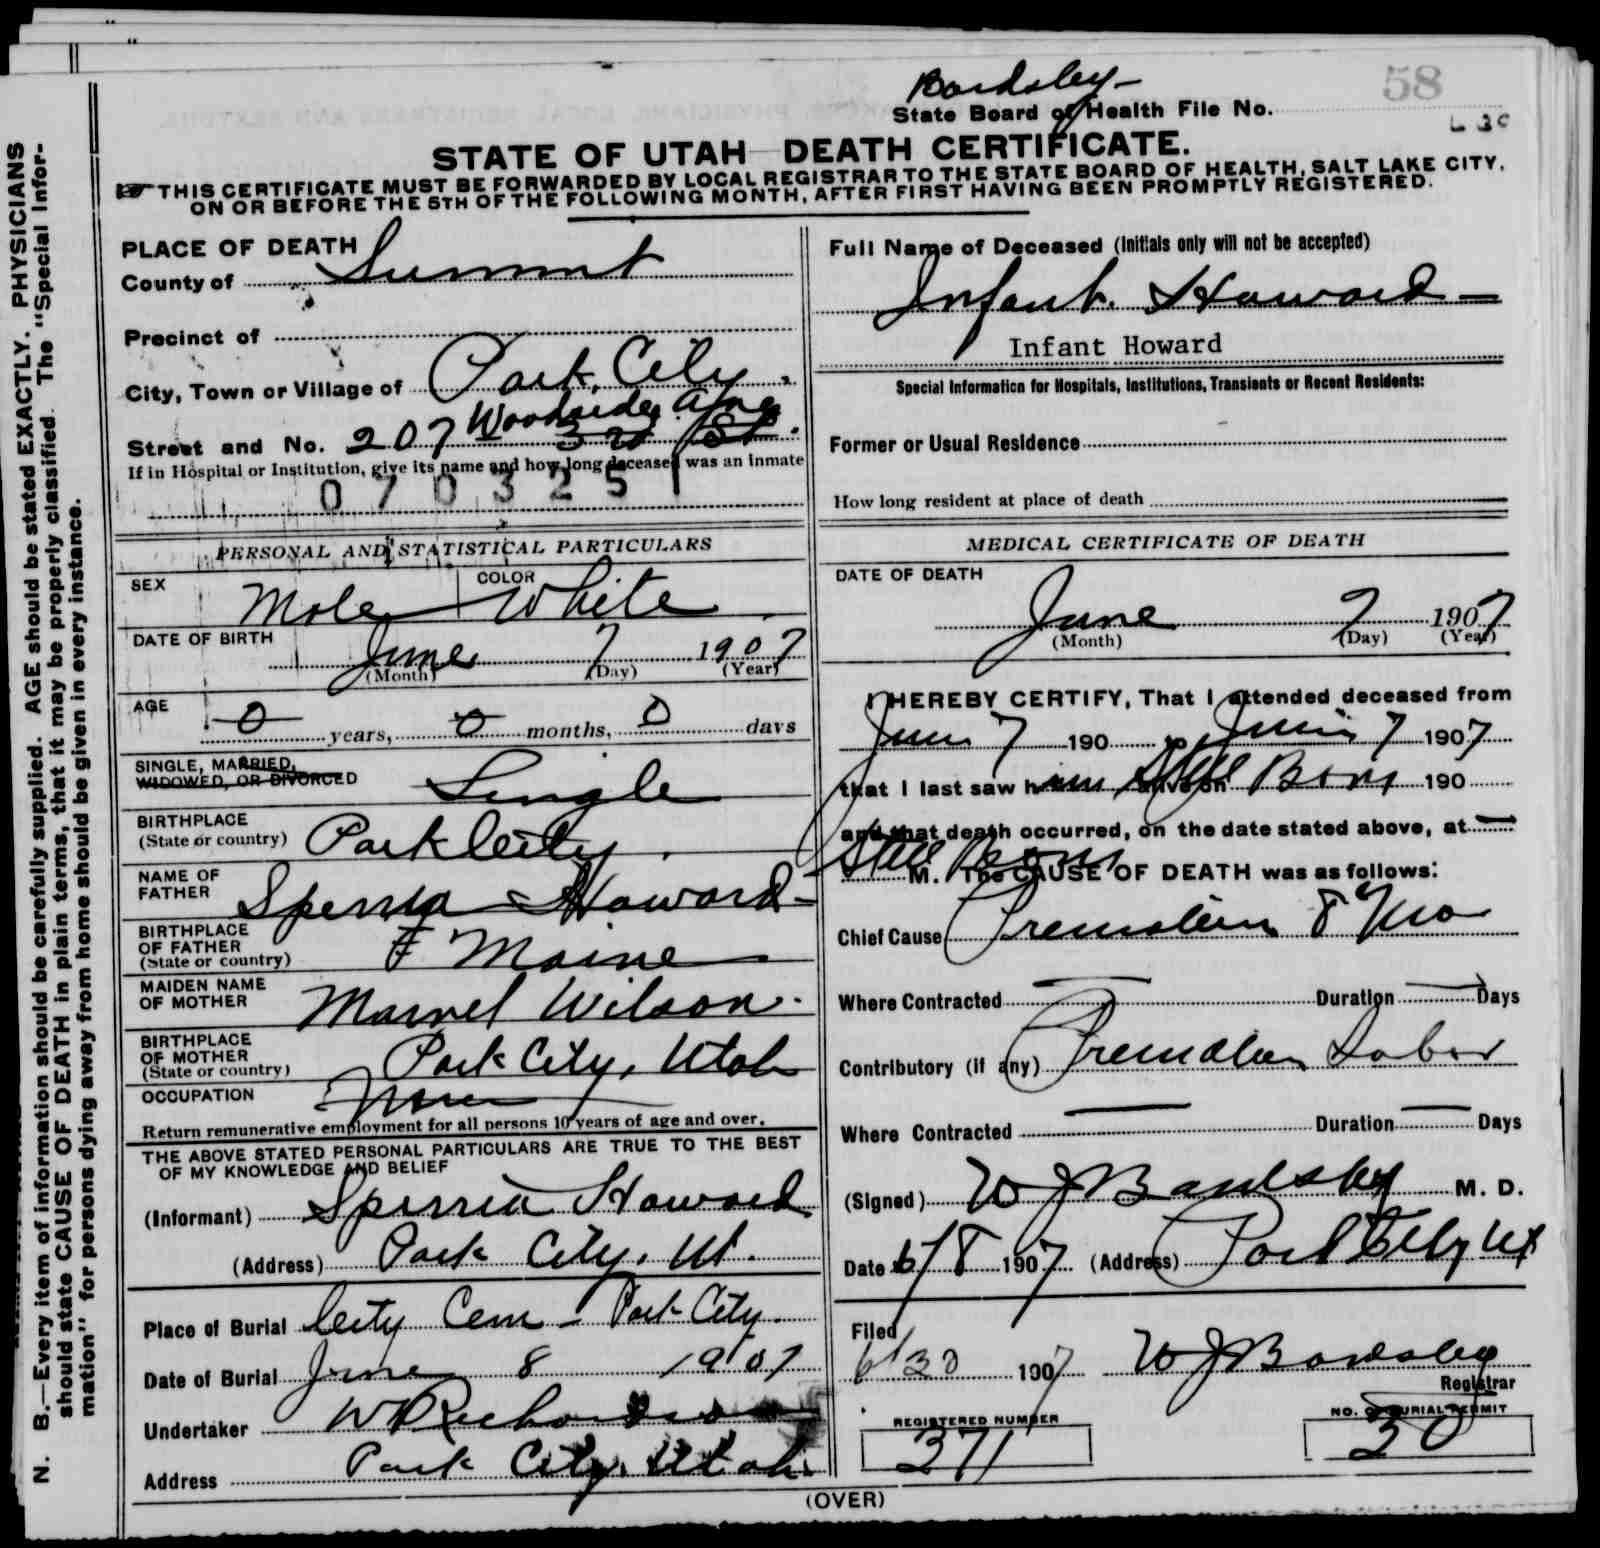 Bardsley
58
State Board of Health File No.
STATE OF UTAH DEATH CERTIFICATE.
THIS CERTIFICATE MUST BE FORWARDED BY LOCAL REGISTRAR TO THE STATE BOARD OF HEALTH, SALT LAKE CITY,
ON OR BEFORE THE 5TH OF THE FOLLOWING MONTH, AFTER FIRST HAVING BEEN PROMPTLY REGISTERED.
N. B.—Every item of information should be carefully supplied. AGE should be stated EXACTLY. PHYSICIANS
should state CAUSE OF DEATH in plain terms, that it may be properly classified. The "Special Infor-
mation" for persons dying away from home should be given in every instance.
PLACE OF DEATH
County of Summit
Precinct of
City, Town or Village of Park City.
Street and No. 207 Woodside Ave 3rd St.
If in Hospital or Institution, give its name and how long deceased was an inmate
070325
PERSONAL AND STATISTICAL PARTICULARS
SEX Male COLOR White
DATE OF BIRTH June 7 1907
(Month) (Day) (Year)
AGE 0 years, 0 months, 0 days
SINGLE, MARRIED,
WIDOWED, OR DIVORCED Single
BIRTHPLACE
(State or country) Park City.
NAME OF
FATHER Sperria Howard
BIRTHPLACE
OF FATHER
(State or country) Maine
MAIDEN NAME
OF MOTHER Marvel Wilson.
BIRTHPLACE
OF MOTHER
(State or country) Park City, Utah
OCCUPATION None
Return remunerative employment for all persons 10 years of age and over.
THE ABOVE STATED PERSONAL PARTICULARS ARE TRUE TO THE BEST
OF MY KNOWLEDGE AND BELIEF
(Informant) Sperria Howard
(Address) Park City, Ut.
Place of Burial City Cem - Park City.
Date of Burial June 8 1907
Undertaker W Richardson
Address Park City, Utah.
Full Name of Deceased (Initials only will not be accepted)
Infant. Howard
Infant Howard
Special Information for Hospitals, Institutions, Transients or Recent Residents:
Former or Usual Residence
How long resident at place of death
MEDICAL CERTIFICATE OF DEATH
DATE OF DEATH
June 7 1907
(Month) (Day) (Year)
I HEREBY CERTIFY, That I attended deceased from
June 7 190 to June 7 1907
that I last saw him alive on Still Born 190
and that death occurred, on the date stated above, at
Still Born
M. The CAUSE OF DEATH was as follows:
Chief Cause Premature 8 Mo
Where Contracted Duration Days
Contributory (if any) Premature Labor
Where Contracted Duration Days
(Signed) W J Bardsley M. D.
Date 6/8 1907 (Address) Park City Ut
Filed
6/30 1907 W J Bardsley
Registrar
REGISTERED NUMBER
371
NO. OF BURIAL PERMIT
30
(OVER)